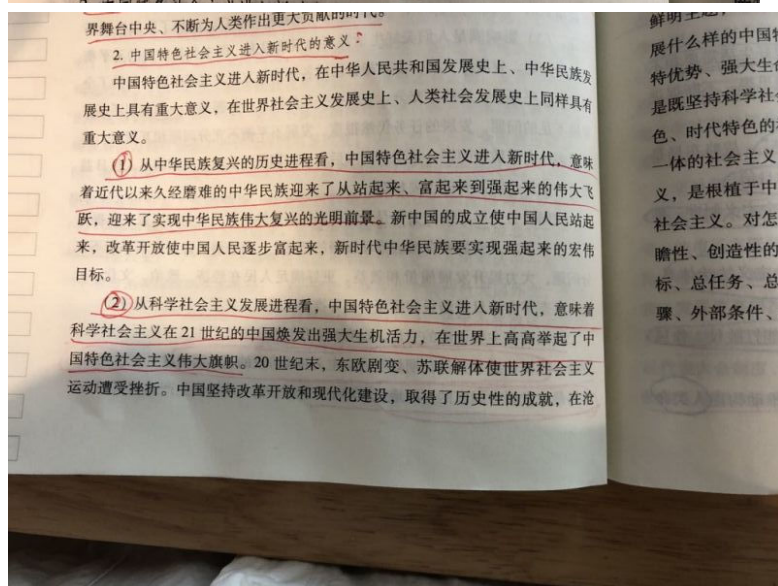 界舞台中央、不断为人类作出更大贡献的时代。
2. 中国特色社会主义进入新时代的意义?
中国特色社会主义进入新时代，在中华人民共和国发展史上、中华民族发
展史上具有重大意义，在世界社会主义发展史上、人类社会发展史上同样具有
重大意义。
(1) 从中华民族复兴的历史进程看，中国特色社会主义进入新时代，意味
着近代以来久经磨难的中华民族迎来了从站起来、富起来到强起来的伟大飞
跃，迎来了实现中华民族伟大复兴的光明前景。新中国的成立使中国人民站起
来，改革开放使中国人民逐步富起来，新时代中华民族要实现强起来的宏伟
目标。
(2) 从科学社会主义发展进程看，中国特色社会主义进入新时代，意味着
科学社会主义在 21 世纪的中国焕发出强大生机活力，在世界上高高举起了中
国特色社会主义伟大旗帜。20 世纪末，东欧剧变、苏联解体使世界社会主义
运动遭受挫折。中国坚持改革开放和现代化建设，取得了历史性的成就，在沧
鲜明主题，
展什么样的中国特
特优势、强大生命
是既坚持科学社会
色、时代特色的
一体的社会主义
义，是根植于中
社会主义。对怎
瞻性、创造性的
标、总任务、总
骤、外部条件、